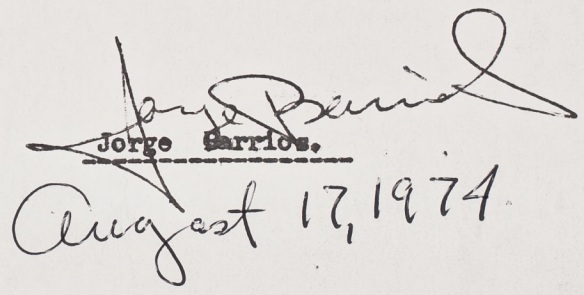 Jorge Barrios
Jorge Barrios.
August 17, 1974